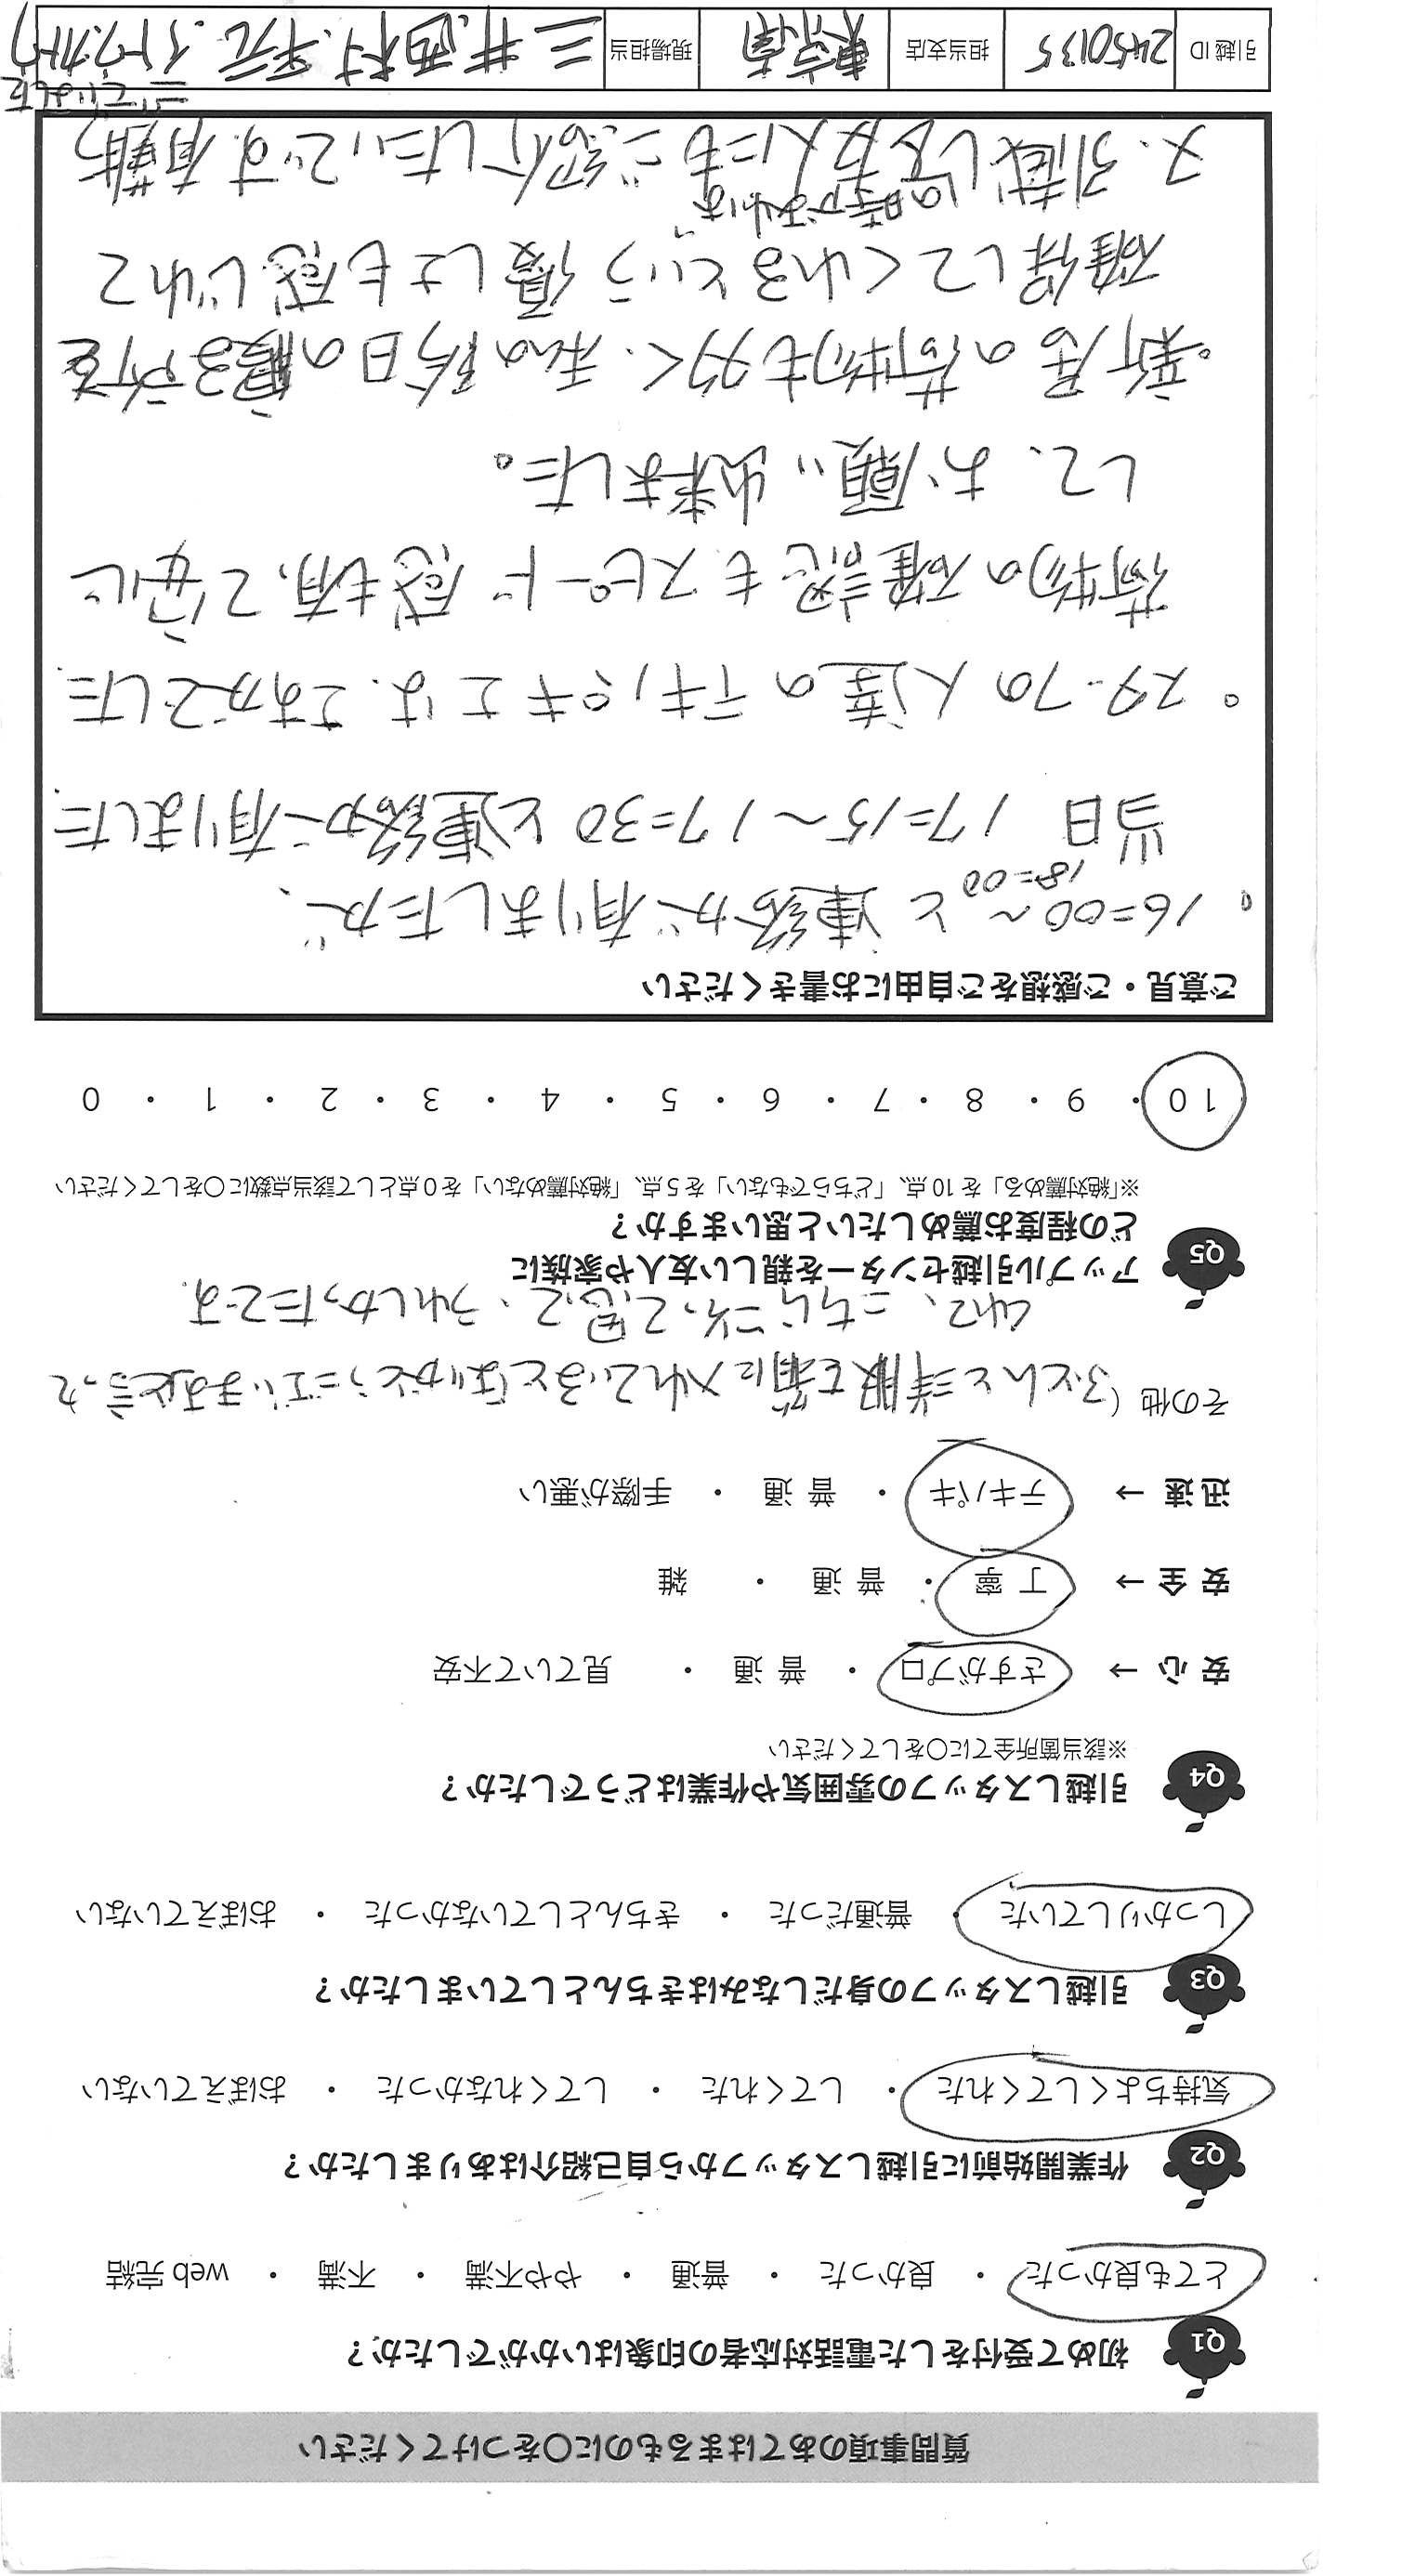 質問事項のあてはまるものに〇をつけてください
Q1 初めて受付をした電話対応者の印象はいかがでしたか？
とても良かった ・ 良かった ・ 普通 ・ やや不満 ・ 不満 ・ web完結
Q2 作業開始前に引越しスタッフから自己紹介はありましたか？
気持ちよくしてくれた ・ してくれた ・ してくれなかった ・ おぼえていない
Q3 引越しスタッフの身だしなみはきちんとしていましたか？
しっかりしていた ・ 普通だった ・ きちんとしていなかった ・ おぼえていない
Q4 引越しスタッフの雰囲気や作業はどうでしたか？
※該当箇所全てに〇をしてください
安心 → さすがプロ ・ 普通 ・ 見ていて不安
安全 → 丁寧 ・ 普通 ・ 雑
迅速 → テキパキ ・ 普通 ・ 手際が悪い
その他 (ふとんと洋服を箱に入れているとありがとうございますと言って
くれて、こちらこそって思って、うれしかったです.
Q5 アップル引越センターを親しい友人や家族に
どの程度お薦めしたいと思いますか？
※「絶対薦める」を10点、「どちらでもない」を5点、「絶対薦めない」を0点として該当点数に〇をしてください
10 ・ 9 ・ 8 ・ 7 ・ 6 ・ 5 ・ 4 ・ 3 ・ 2 ・ 1 ・ 0
ご意見・ご感想をご自由にお書きください
。16=00～18=00と連絡が有りましたが、
当日 17=15～17=30と連絡が有りました.
。スタッフの人達のテキパキさは、さすがでした.
荷物の確認もスピード感も有って安心
して、お願い出来ました。
。新居の荷物も多く、私の今日の寝る所を
確保してくれるという優しさも感じれて
又、引越しの時があれば友人にもご紹介したいです.有難う
ございました
引越ID 2450135 担当支店 東京南 現場担当 三井,西村,